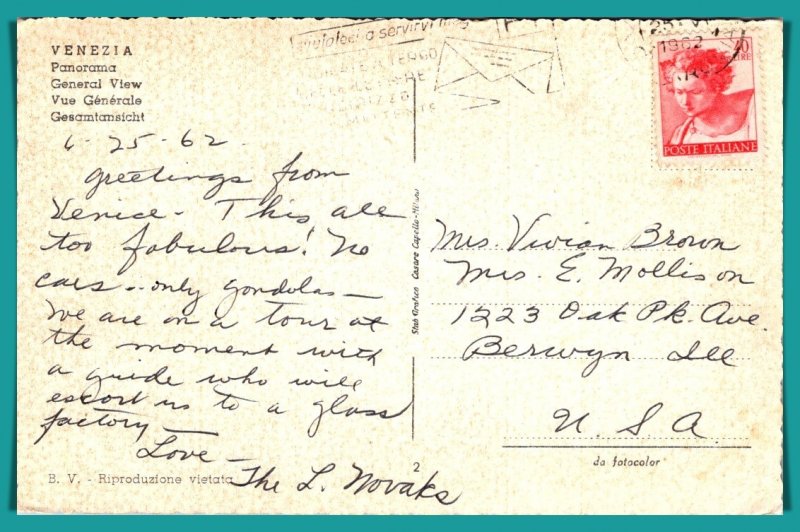 VENEZIA
Panorama
General View
Vue Générale
Gesamtansicht
6-25-62
Greetings from
Venice - This all
too fabulous! No
cars -- only gondolas -
We are on a tour at
the moment with
a guide who will
escort us to a glass
factory -
Love -
The L. Novaks
B. V. - Riproduzione vietata
2
aiutateci a servirvi meglio
MITTENTE
1962
POSTE ITALIANE
Mrs. Vivian Brown
Mrs. E. Mollison
1223 Oak Pk. Ave.
Berwyn Ill
U. S. A.
da fotocolor